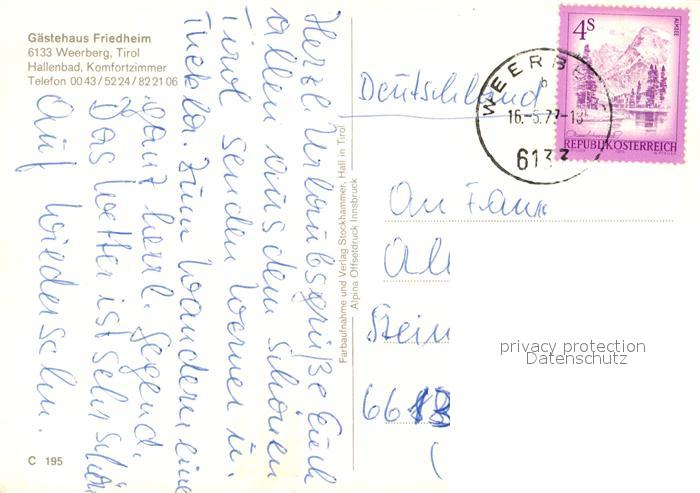 Gästehaus Friedheim
6133 Weerberg, Tirol
Hallenbad, Komfortzimmer
Telefon 0043/5224/822106
Herzl. Urlaubsgrüße Euch
allen aus dem schönen
Tirol senden Werner u.
Thekla. Zum Wandern eine
ganz herrl. Gegend.
Das Wetter ist sehr schön
Auf Wiedersehn.
C 195
Farbaufnahme und Verlag Stockhammer, Hall in Tirol
Alpina Offsetdruck Innsbruck
4S
ALMSEE
REPUBLIK ÖSTERREICH
WEERBE
b
16.-5.77-18
6133
Deutschland
An Fam
All
Stein
66
privacy protection
Datenschutz